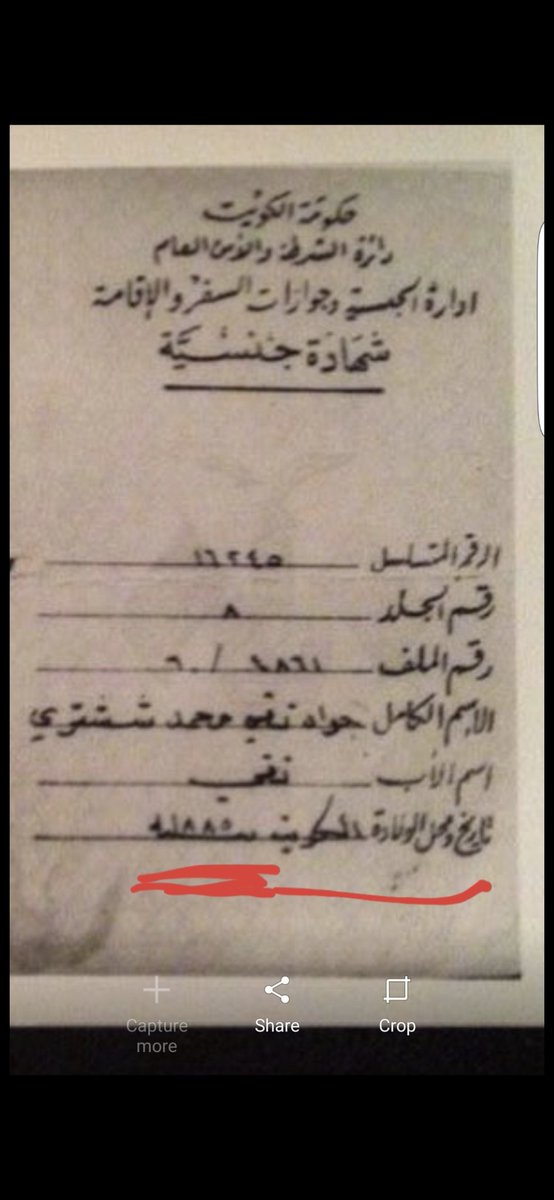 حكومة الكويت
دائرة الشرطة والأمن العام
ادارة الجنسية وجوازات السفر والإقامة
شهادة جنسية
الرقم المتسلسل ١٦٢٤٥
رقم الجلد ٨
رقم الملف ٦٠/
الإسم الكامل جواد تقي محمد ششتري
اسم الأب تقي
تاريخ ومحل الولادة الكويت ١٨٨٥
Capture more
Share
Crop